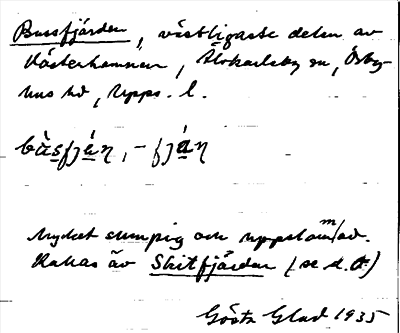 Bussfjärden, västligaste delen av
Västerhamnen, Älvkarleby sn, Örby-
hus hd, Upps. l.
bùsfjá̱ṇ, -fjá̱ṇ
Mycket sumpig och uppslammad.
Kallas äv Skitfjärden (se d. o.)
Gösta Glad 1935